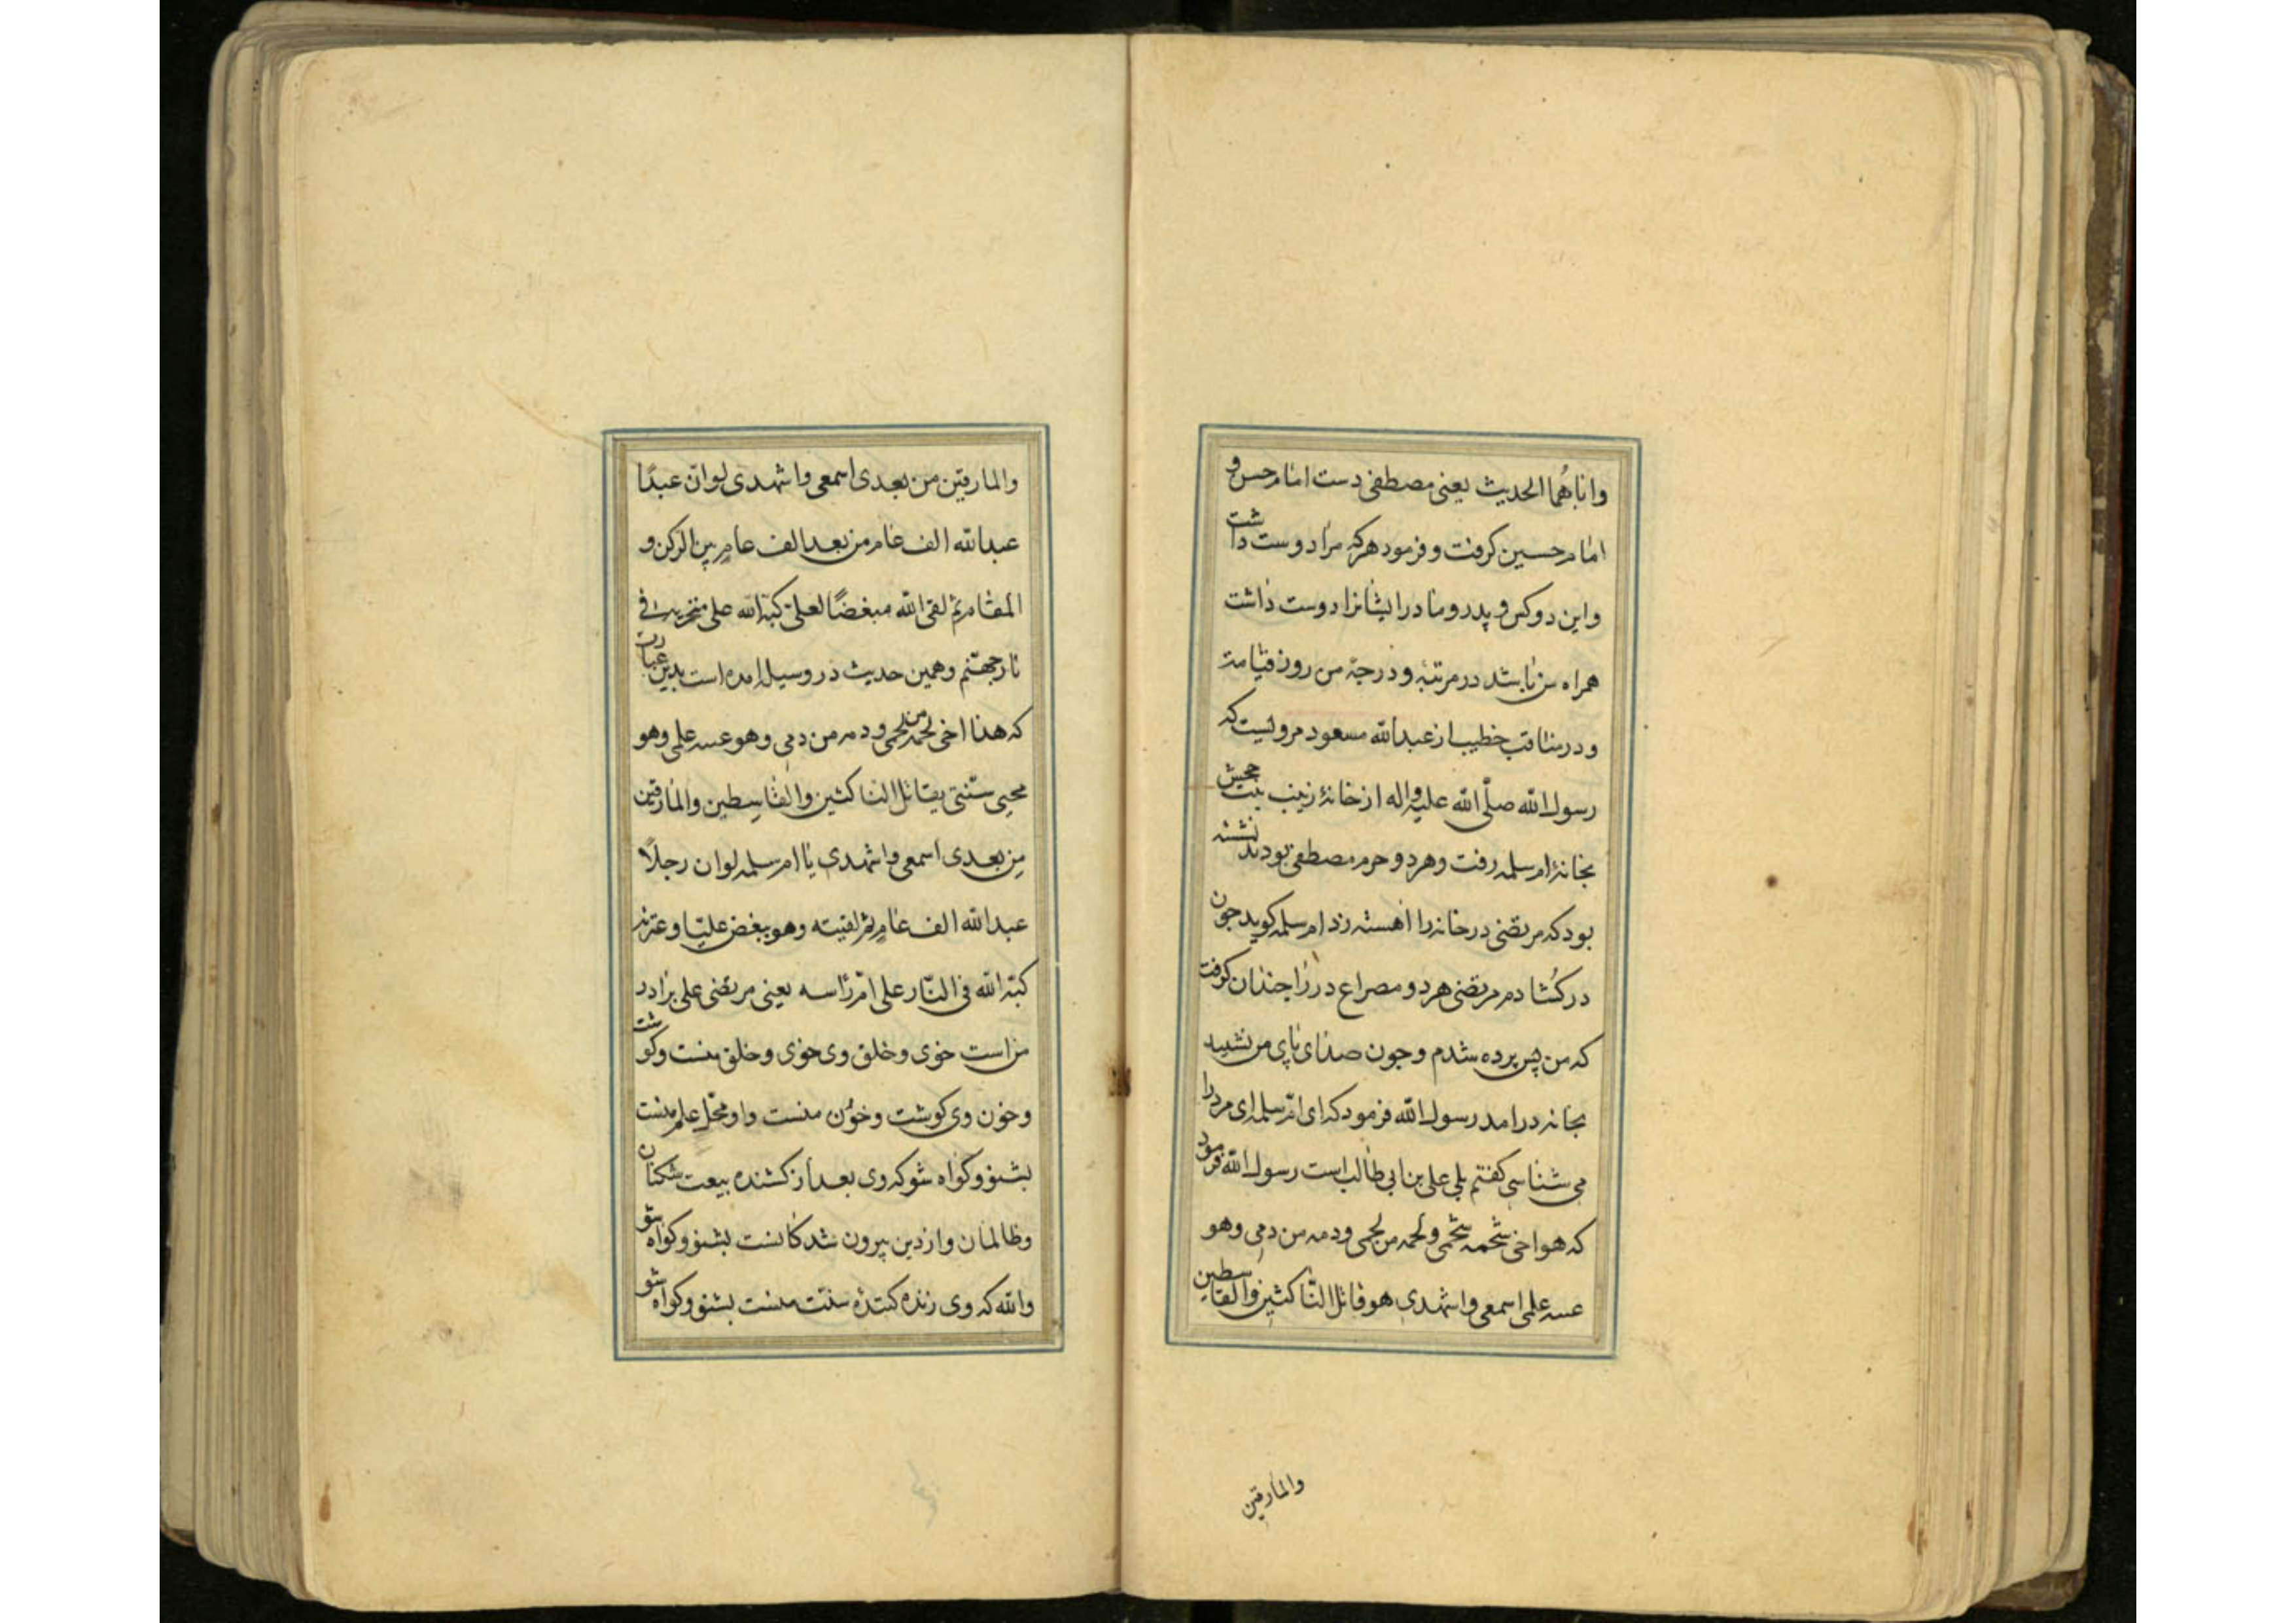 واباهُما الحدیث یعنی مصطفی دست امام حسن و
امام حسین کرفت و فرمود هرکه مرا دوست داشت
واین دو کس و پدر و مادر ایشانرا دوست داشت
همراه من باشد در مرتبه و درجهٔ من روز قیامة
و در مناقب خطیب از عبدالله مسعود مرویست که
رسول الله صلّی الله علیه واله از خانهٔ زینب بنت جحش
بخانهٔ ام سلمه رفت وهر دو حرم مصطفی بودند نشسته
بود که مرتضی در خانه را اهسته زد ام سلمه کوید جون
در کشادم مرتضی هر دو مصراع در را جندان کرفت
که من پس پرده شدم و جون صدای پای من نشنید
بخانه درامد رسول الله فرمود که ای امّ سلمه ای مرد را
می شناسی کفتم بلی علی بن ابی طالب است رسول الله فرمود
که هو اخی شحمه شحمی و لحمه من لحمی ودمه من دمی وهو
عسه علمی اسمعی واشهدی هو قاتل النّاکثین والقاسطین
والمارقین
والمارقین من بعدی اسمعی واشهدی لوانّ عبدًا
عبدالله الف عام من بعد الف عامٍ بین الرکن و
المقام ثم لقی الله مبغضًا لعلیّ کبّه الله علی منخریه فی
نار جهنّم وهمین حدیث در وسیله امده است بدین عبارت
که هذا اخی لحمه من لحمی ودمه من دمی وهو عسه علمی وهو
محیی سنّتی یقاتل الناکثین والقاسطین والمارقین
من بعدی اسمعی واشهدی یا ام سلمه لوان رجلاً
عبدالله الف عامٍ ثم لقیته وهو یبغض علیّا وعترته
کبّه الله فی النّار علی امّ رأسه یعنی مرتضی علی برادر
من است خوی وخلق وی خوی وخلق منست وکوشت
وخون وی کوشت وخون منست واو محلّ علم منست
بشنو وکواه شو که وی بعد از کشنده بیعت شکنان
وظالمان واز دین بیرون شدکانست بشنو وکواه شو
والله که وی زنده کنندهٔ سنّت منست بشنو وکواه شو